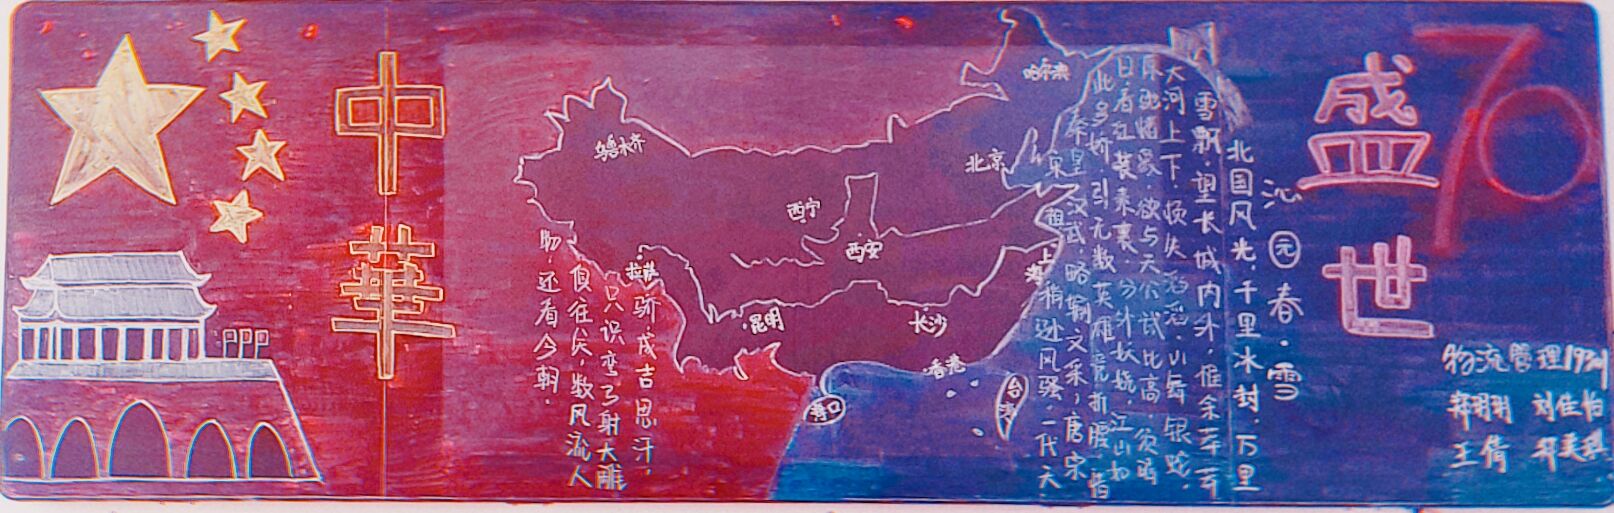 中華
盛世
70
沁园春·雪
北国风光,千里冰封,万里
雪飘,望长城内外,惟余莽莽
大河上下,顿失滔滔,山舞银蛇,
原驰蜡象,欲与天公试比高,须晴
日看红装素裹,分外妖娆,江山如
此多娇,引无数英雄竞折腰,惜
秦皇汉武,略输文采,唐宋
宋祖稍逊风骚,一代天
骄,成吉思汗,
只识弯弓射大雕
俱往矣,数风流人
物,还看今朝.
哈尔滨
乌鲁木齐
北京
西宁
西安
拉萨
上海
昆明
长沙
香港
海口
台湾
物流管理
刘佳怡
王倩